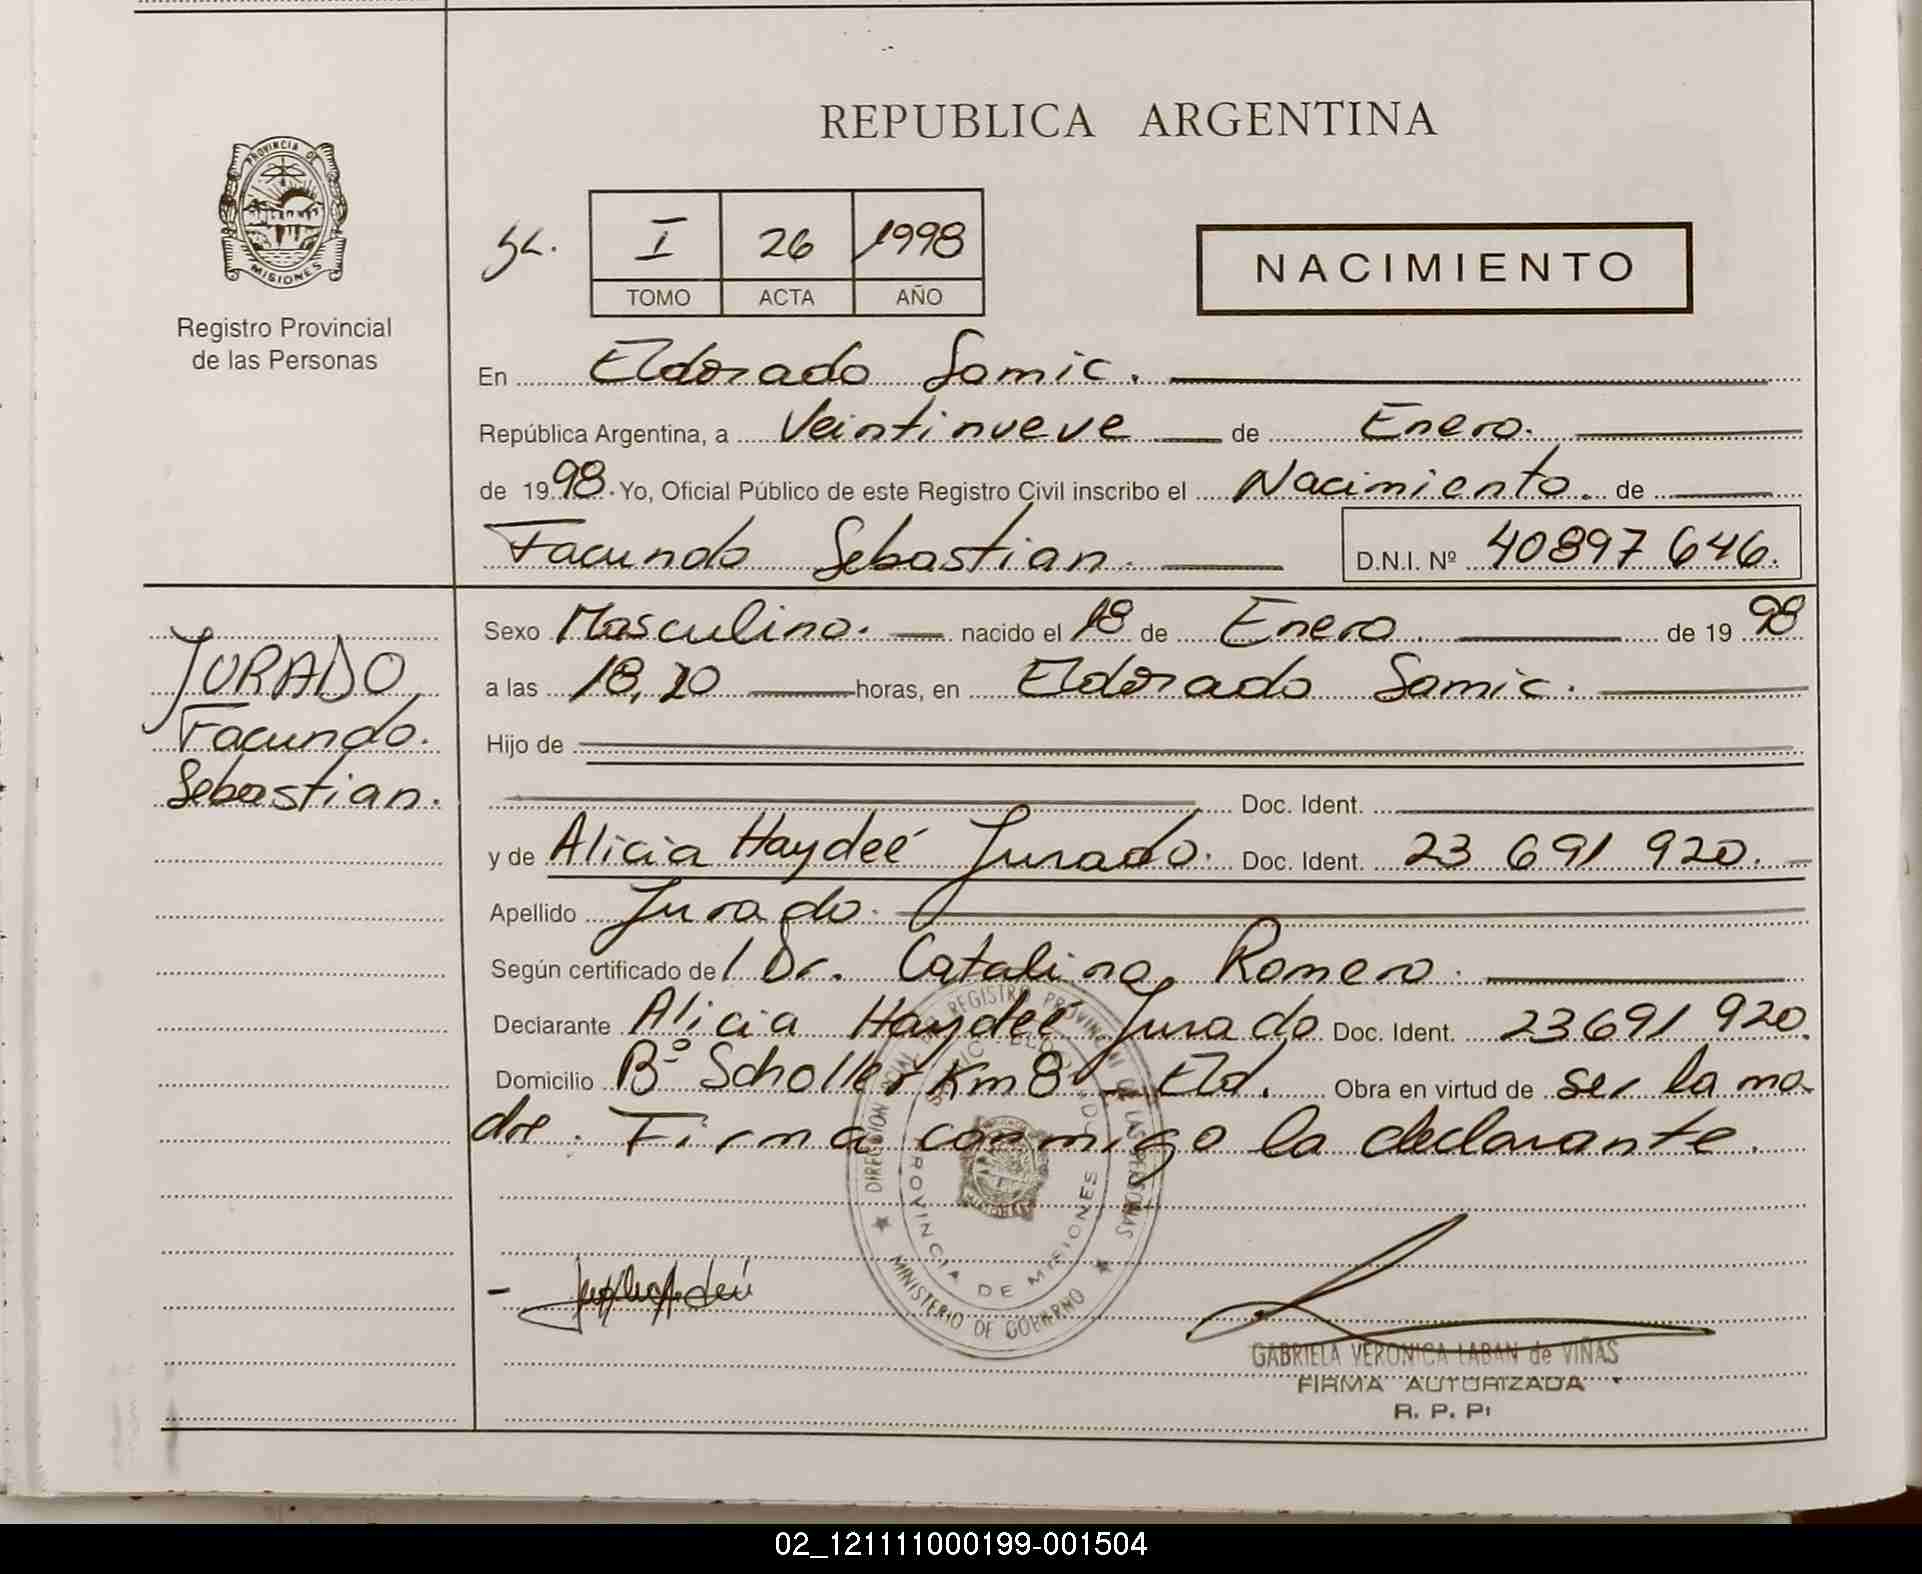 REPUBLICA ARGENTINA
PROVINCIA DE
MISIONES
Registro Provincial
de las Personas
I 26 1998
TOMO ACTA AÑO
NACIMIENTO
En Eldorado Samic.
República Argentina, a Veintinueve de Enero.
de 1998. Yo, Oficial Público de este Registro Civil inscribo el Nacimiento. de
Facundo Sebastian. D.N.I. Nº 40897646.
JURADO
Facundo.
Sebastian.
Sexo Masculino. nacido el 18 de Enero. de 1998
a las 18,20 horas, en Eldorado Samic.
Hijo de
Doc. Ident.
y de Alicia Haydeé Jurado. Doc. Ident. 23 691 920.
Apellido Jurado.
Según certificado de / Dr. Catalina Romero.
Declarante Alicia Haydeé Jurado Doc. Ident. 23691920.
Domicilio Bº Scholler Km 8 - Eld. Obra en virtud de ser la ma
dre. Firma conmigo la declarante.
DIRECCION REGISTRO PROVINCIAL DE LAS PERSONAS
PROVINCIA DE MISIONES
MINISTERIO DE GOBIERNO
GABRIELA VERONICA LABAN de VIÑAS
FIRMA AUTORIZADA
R. P. P.
02_121111000199-001504